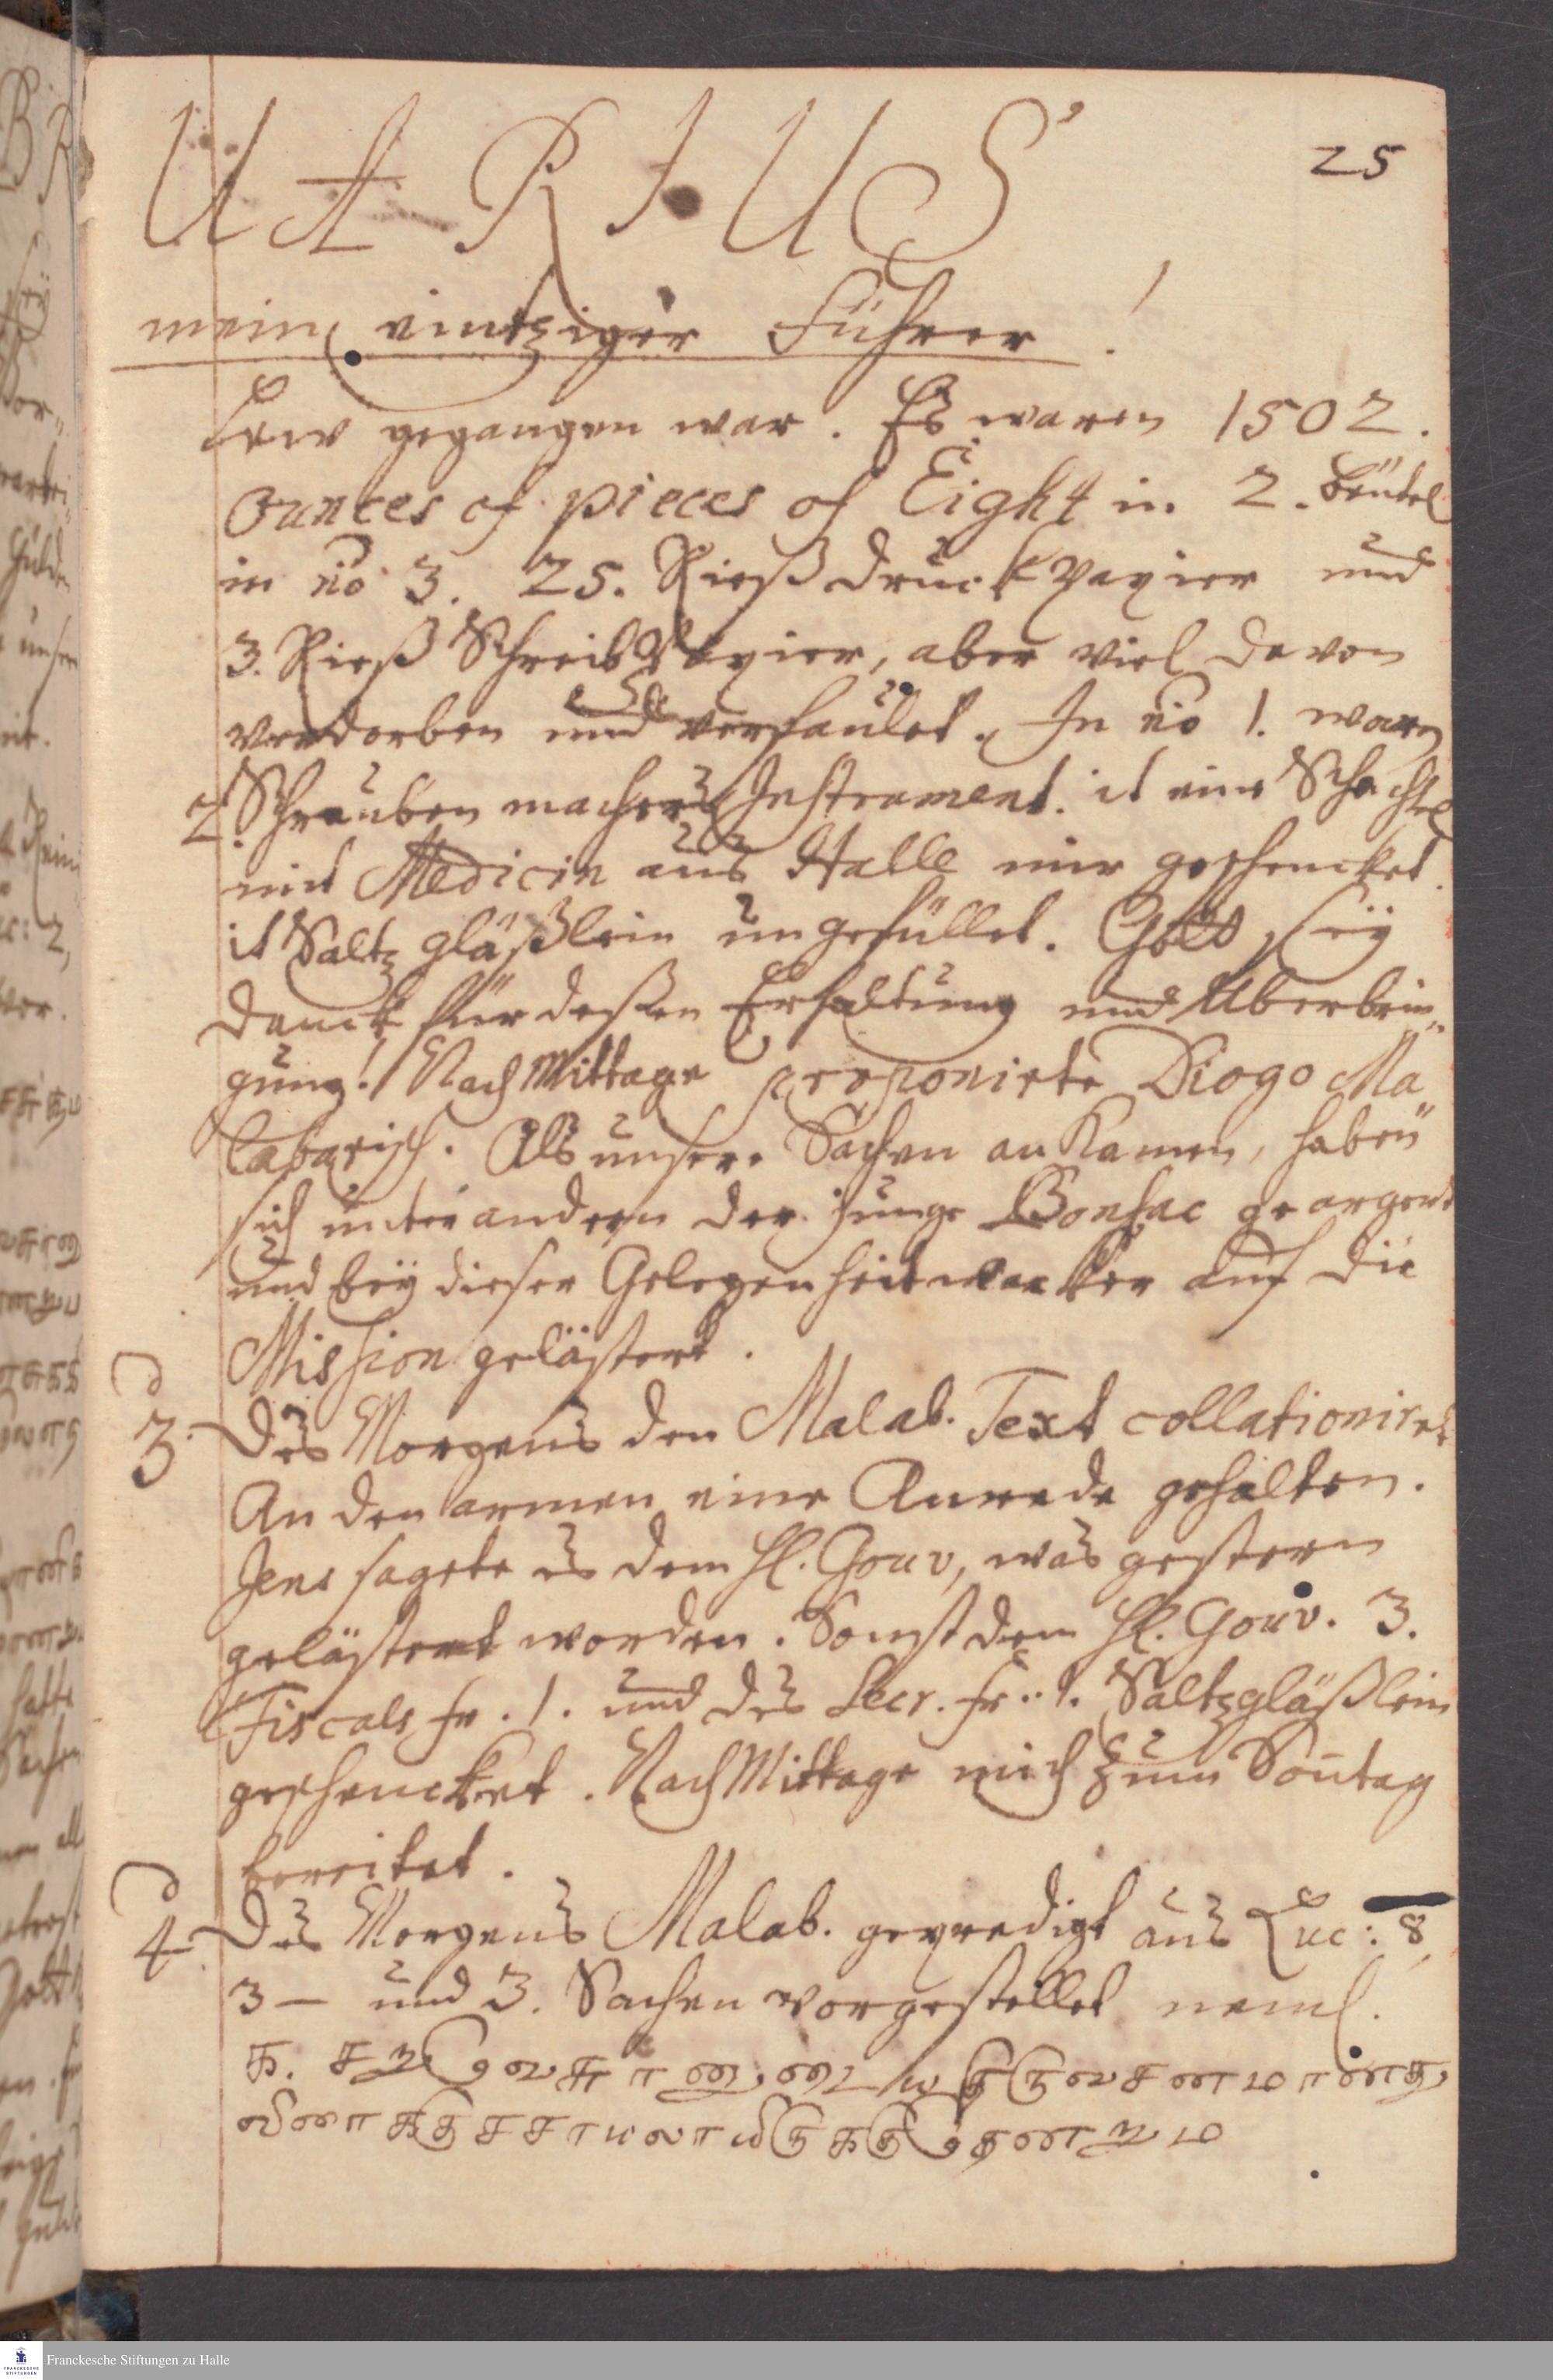 25
UARIUS
mein eintziger Führer!
gegangen war. Es waren 1502.
Ounces of pieces of Eight in 2. Beütel
in no 3. 25. Rieß druckpapier und
3. Rieß Schreibpapier, aber viel davon
verdorben und verfaulet. In no 1. waren
2. Schraubenmachers Instrument. it eine Schachtel
mit Medicin aus Halle mir geschencket.
it Saltzgläßlein ungefüllet. Gott sey
danck für deßen Erhaltung und Uberbrin„
gung! NachMittage proponirte Diogo Ma„
labarisch. Als unsere Sachen ankamen, haben
sich unter andern der junge Bonsac geärgert
und bey dieser Gelegenheit wacker auf die
Mission gelästert.
3. Des Morgens den Malab. Text collationiret
An den armen eine Anrede gehalten.
Jens sagete es dem H. Gouv, was gestern
gelästert worden. Sonst dem H. Gouv. 3.
Fiscals fr. 1. und des Secr. fr. 1. Saltzgläßlein
geschencket. NachMittage mich zum Sontag
bereitet.
4. Des Morgens Malab. gepredigt aus Luc: 8,
3— und 3. Sachen vorgestellet neml.
Franckesche Stiftungen zu Halle